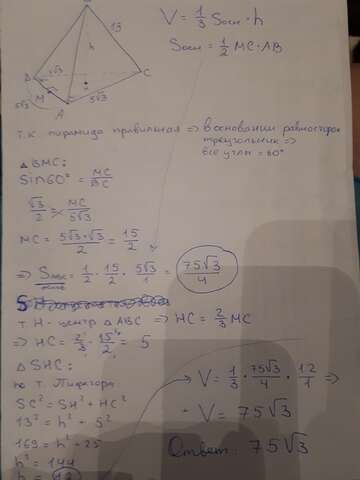 13
h
5√3
C
B
M
5√3
A
5√3
V = 1/3 Sосн · h
Sосн = 1/2 MC · AB
т.к. пирамида правильная ⇒ в основании равносторон
треугольник ⇒
все углы = 60°
△BMC:
sin60° = MC/BC
√3/2 = MC/5√3
MC = 5√3·√3/2 = 15/2
⇒ Sосн = 1/2 · 15/2 · 5√3/1 = 75√3/4
т H - центр △ABC ⇒ HC = 2/3 MC
⇒ HC = 2/3 · 15/2 = 5
△SHC:
по т. Пифагора
SC² = SH² + HC²
13² = h² + 5²
169 = h² + 25
h² = 144
h = 12
V = 1/3 · 75√3/4 · 12/1 ⇒
V = 75√3
Ответ: 75√3